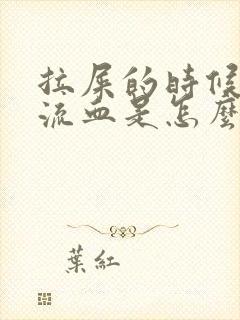 拉屎的時候
流血是怎麼
葉紅